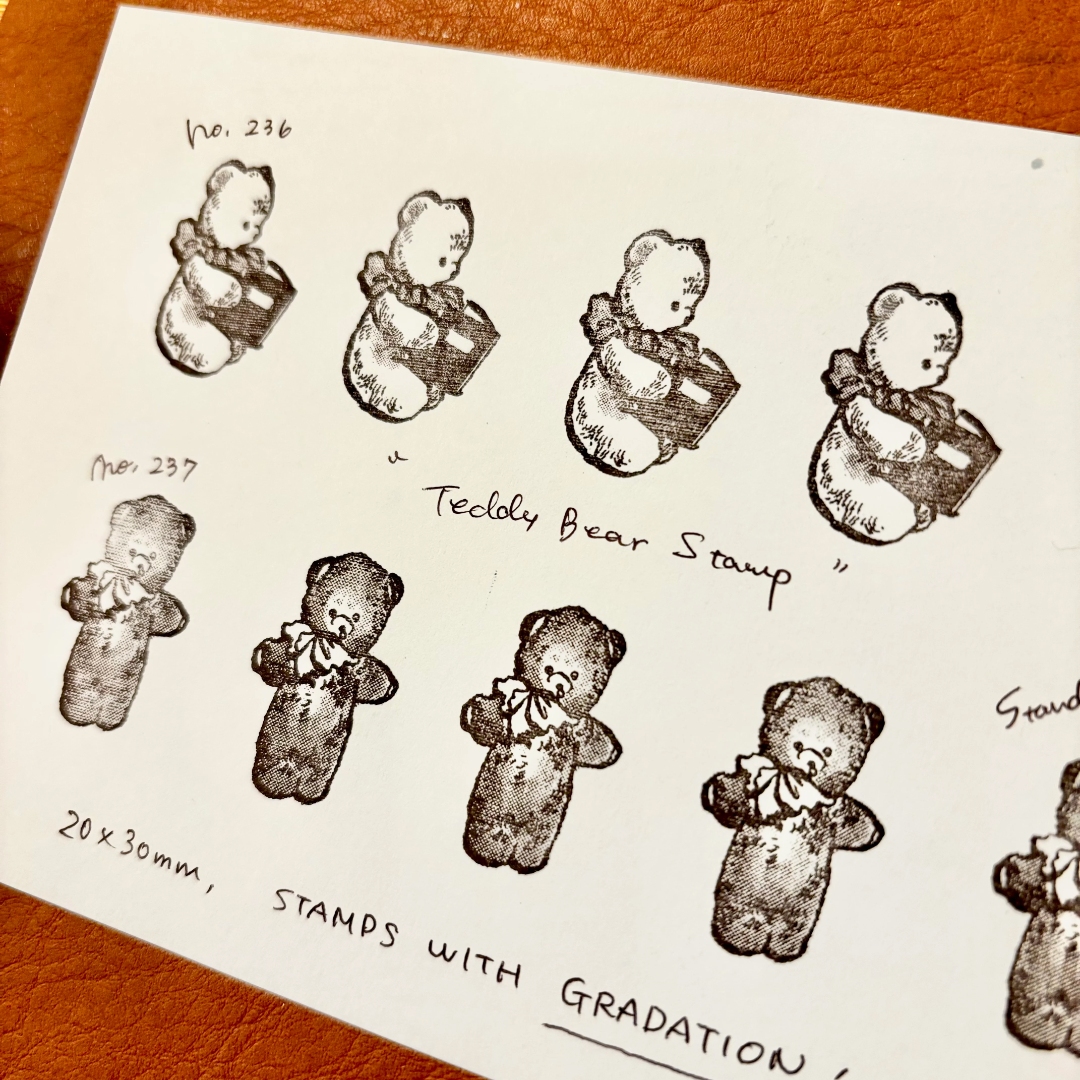 no. 236
no. 237
"Teddy Bear Stamp"
20x30mm, STAMPS WITH GRADATION